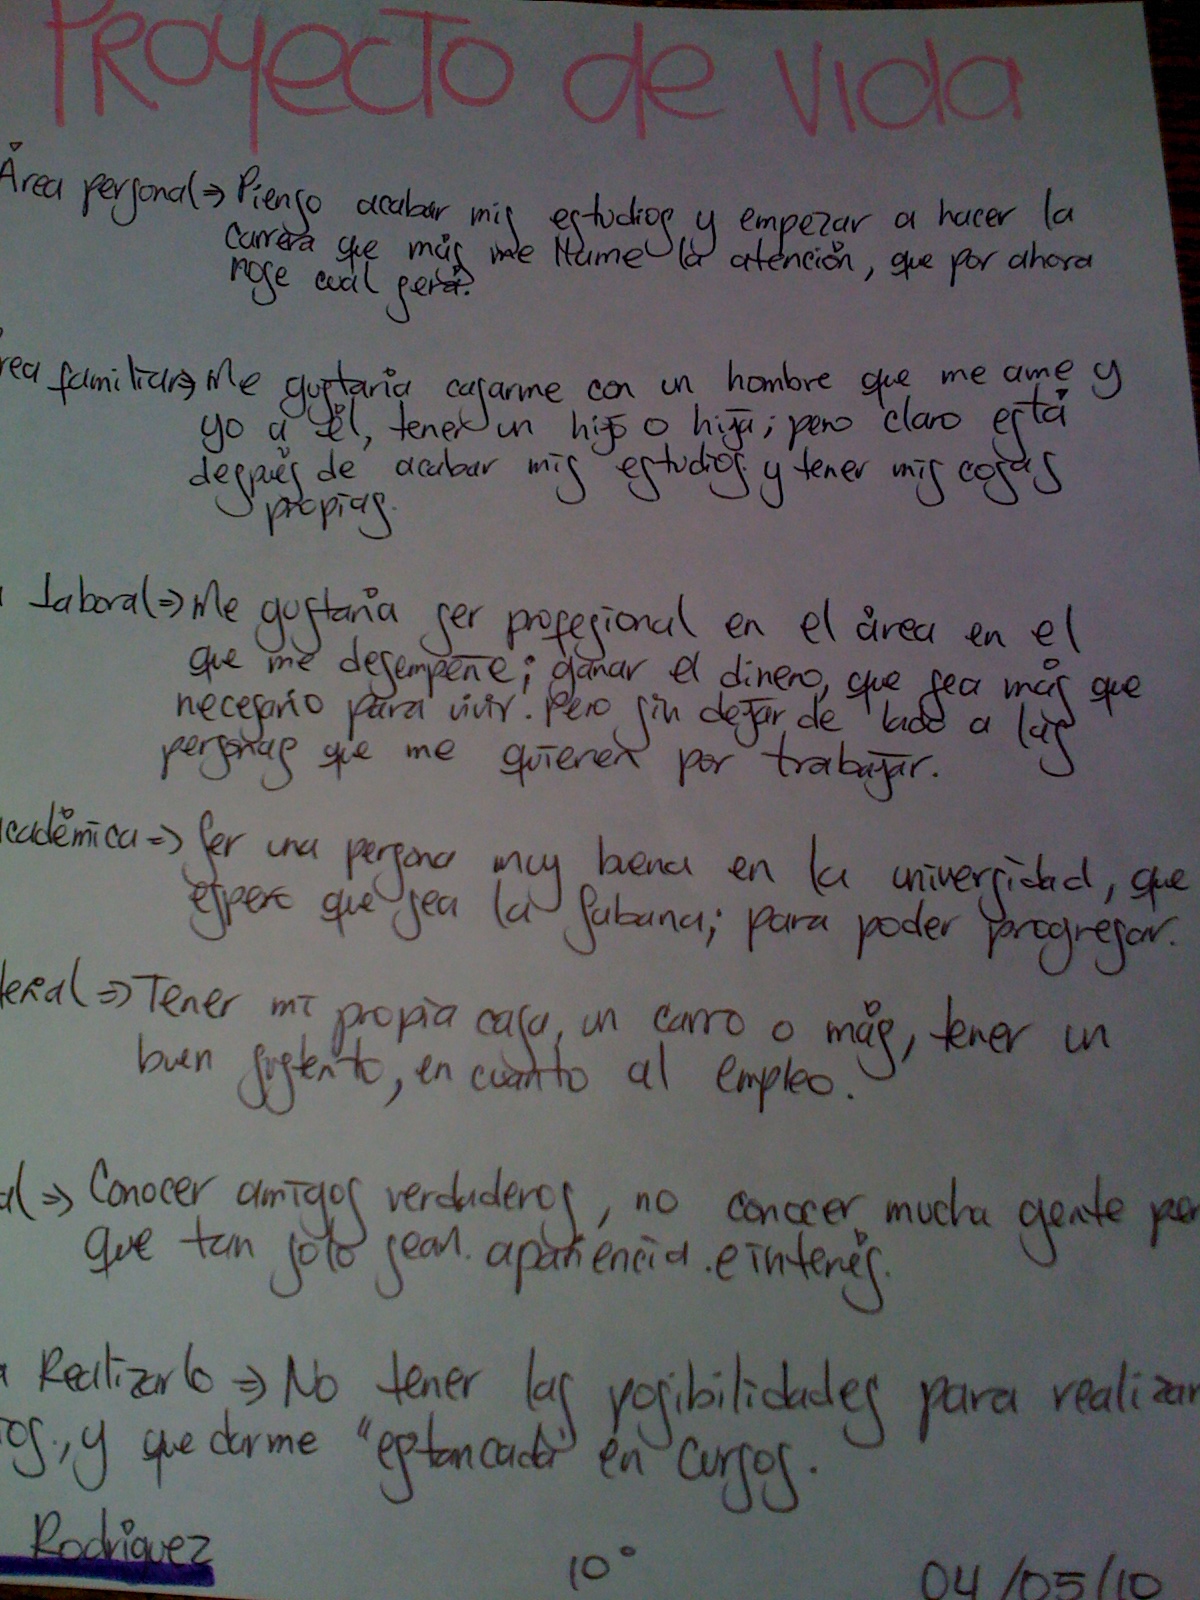 Proyecto de vida
Área personal => Pienso acabar mis estudios y empezar a hacer la
carrera que más me llame la atención, que por ahora
nose cuál será.
rea familiar => Me gustaria casarme con un hombre que me ame y
yo a él, tener un hijo o hija; pero claro está
después de acabar mis estudios y tener mis cosas
propias.
a laboral => Me gustaría ser profesional en el área en el
que me desempeñe; ganar el dinero, que sea más que
necesario para vivir. Pero sin dejar de lado a las
personas que me quieren por trabajar.
académica => Ser una persona muy buena en la universidad, que
espero que sea la Sabana; para poder progresar.
terial => Tener mi propia casa, un carro o más, tener un
buen sustento, en cuanto al empleo.
al => Conocer amigos verdaderos, no conocer mucha gente per
que tan solo sean apariencia e interés.
a Realizarlo => No tener las posibilidades para realizar
ros, y quedarme "estancada" en cursos.
Rodriguez
10°
04/05/10